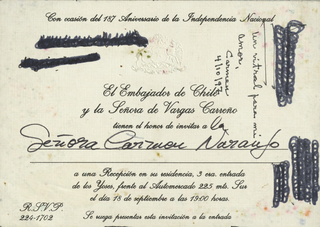 Con ocasión del 187 Aniversario de la Independencia Nacional
Un vitral para mi
amor,
Carmen
4/10/97
El Embajador de Chile
y la Señora de Vargas Carreño
tienen el honor de invitar a la
Señora Carmen Naranjo
a una Recepción en su residencia, 3 ra. entrada
de los Yoses, frente al Automercado 225 mts. Sur
el día 18 de septiembre a las 19:00 horas.
R.S.V.P.
224-1702
Se ruega presentar esta invitación a la entrada